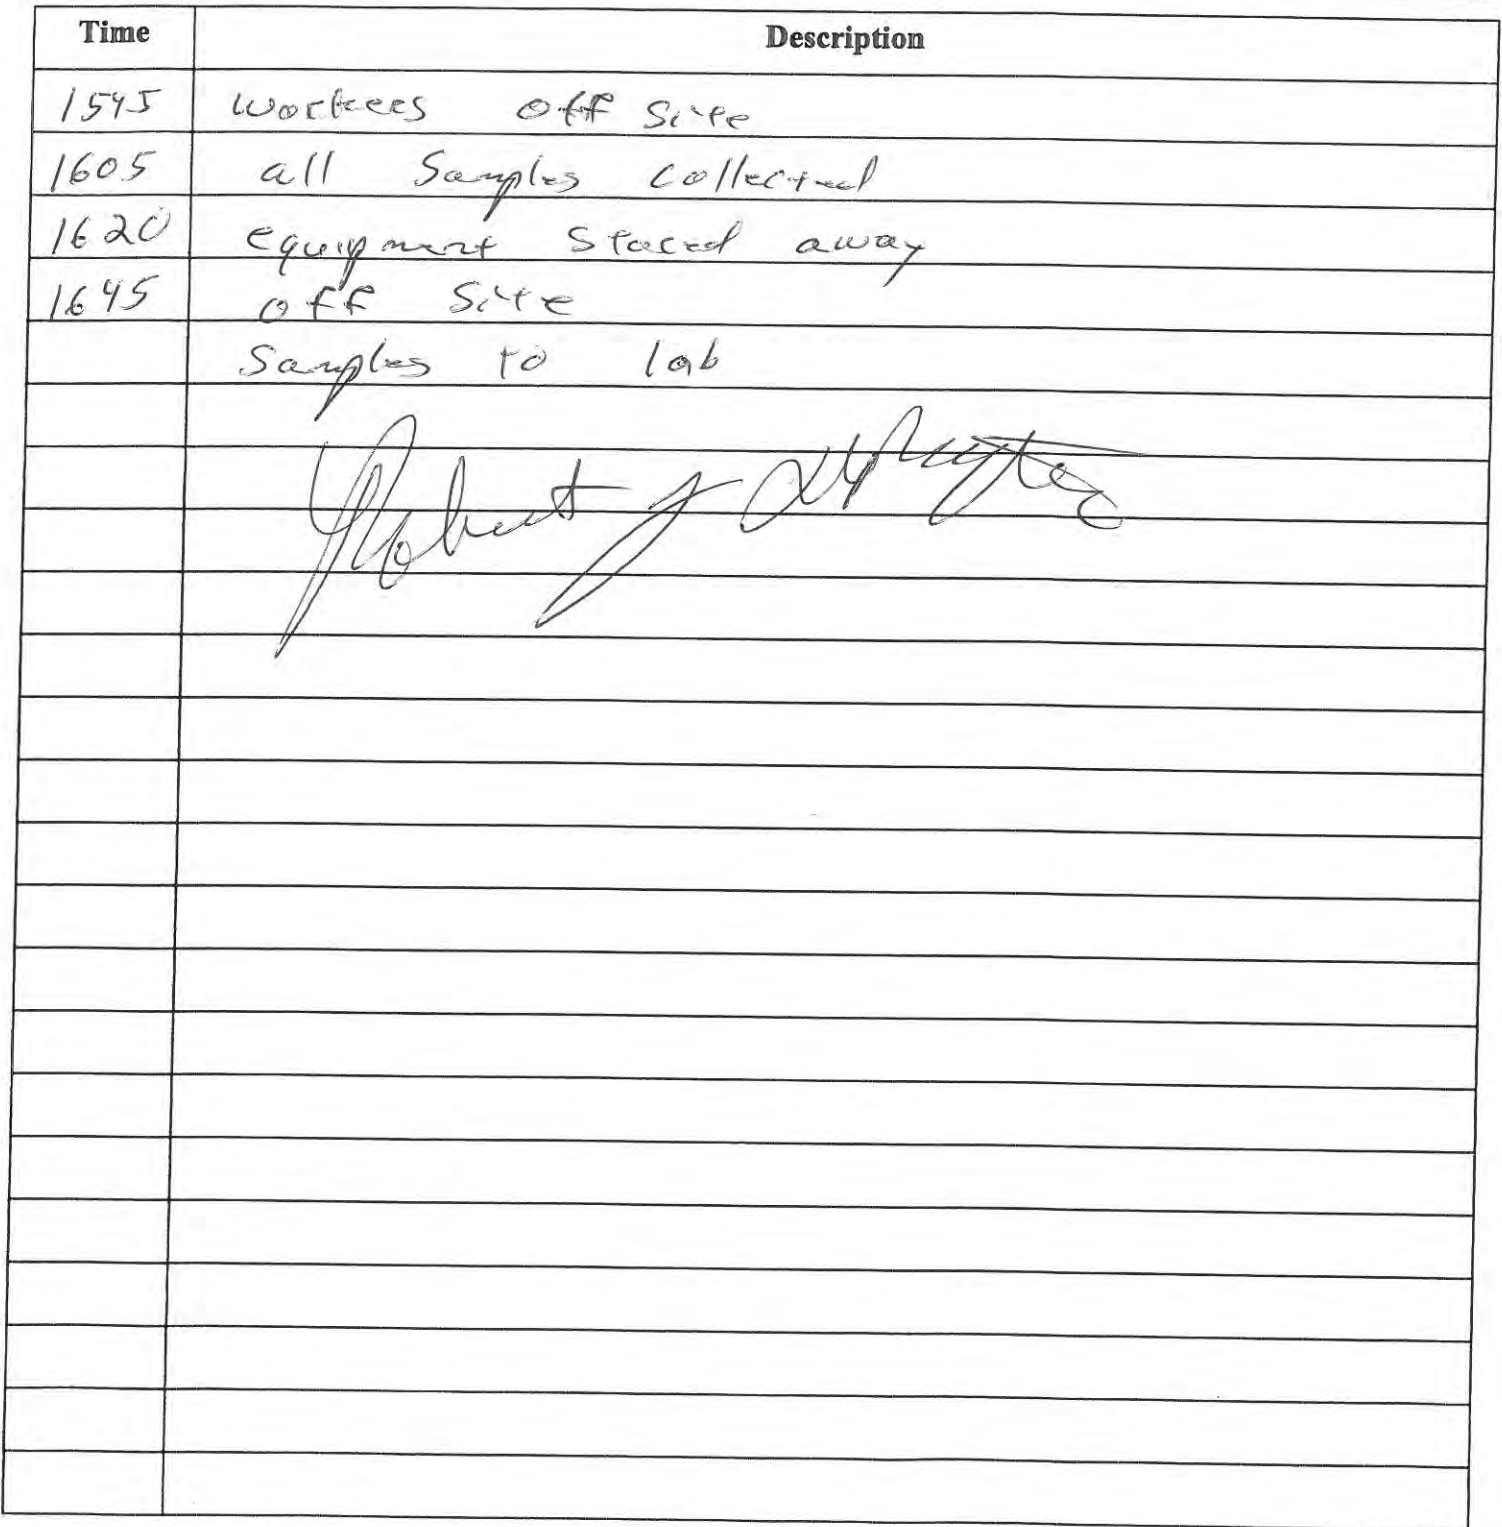 Time Description
1545 workers off site
1605 all samples collected
1620 equipment stored away
1645 off site
samples to lab
Robert J